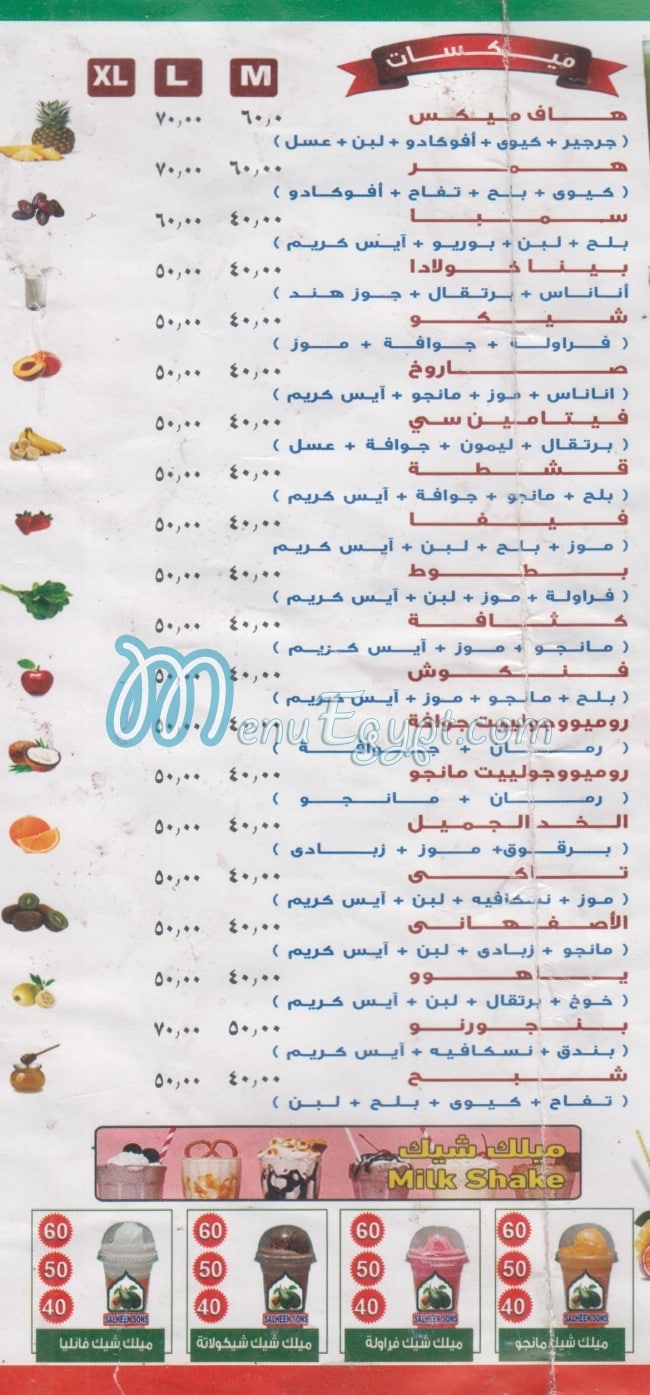 ميكسات
M L XL
هاف ميكس ٦٠,٠ ٧٠,٠٠
( جرجير + كيوى + أفوكادو + لبن + عسل )
همر ٦٠,٠٠ ٧٠,٠٠
( كيوى + بلح + تفاح + أفوكادو )
سمبا ٤٠,٠٠ ٦٠,٠٠
بلح + لبن + بوريو + آيس كريم )
بينا خولادا ٤٠,٠٠ ٥٠,٠٠
أناناس + برتقال + جوز هند )
شيكو ٤٠,٠٠ ٥٠,٠٠
( فراولة + جوافة + موز )
صاروخ ٤٠,٠٠ ٥٠,٠٠
( اناناس + موز + مانجو + آيس كريم )
فيتامين سي ٤٠,٠٠ ٥٠,٠٠
( برتقال + ليمون + جوافة + عسل )
قشطة ٤٠,٠٠ ٥٠,٠٠
( بلح + مانجو + جوافة + آيس كريم )
فيفا ٤٠,٠٠ ٥٠,٠٠
( موز + بلح + لبن + آيس كريم
بطوط ٤٠,٠٠ ٥٠,٠٠
( فراولة + موز + لبن + آيس كريم )
كثافة ٤٠,٠٠ ٥٠,٠٠
( مانجو + موز + آيس كريم )
فنكوش ٤٠,٠٠ ٥٠,٠٠
( بلح + مانجو + موز + آيس كريم )
روميووجولييت جوافة ٤٠,٠٠ ٥٠,٠٠
( رمان + جوافة )
MenuEgypt.com
روميووجولييت مانجو ٤٠,٠٠ ٥٠,٠٠
( رمان + مانجو )
الخد الجميل ٤٠,٠٠ ٥٠,٠٠
( برقوق+ موز + زبادى )
تاكى ٤٠,٠٠ ٥٠,٠٠
( موز + نسكافيه + لبن + آيس كريم )
الأصفهانى ٤٠,٠٠ ٥٠,٠٠
( مانجو + زبادى + لبن + آيس كريم )
ياهوو ٤٠,٠٠ ٥٠,٠٠
( خوخ + برتقال + لبن + آيس كريم )
بنجورنو ٥٠,٠٠ ٧٠,٠٠
( بندق + نسكافيه + آيس كريم )
شبح ٤٠,٠٠ ٥٠,٠٠
( تفاح + كيوى + بلح + لبن )
ميلك شيك
Milk Shake
60 60 60 60
50 50 50 50
40 40 40 40
SALHEEN SONS SALHEEN SONS SALHEEN SONS SALHEEN SONS
ميلك شيك مانجو ميلك شيك فراولة ميلك شيك شيكولاتة ميلك شيك فانليا